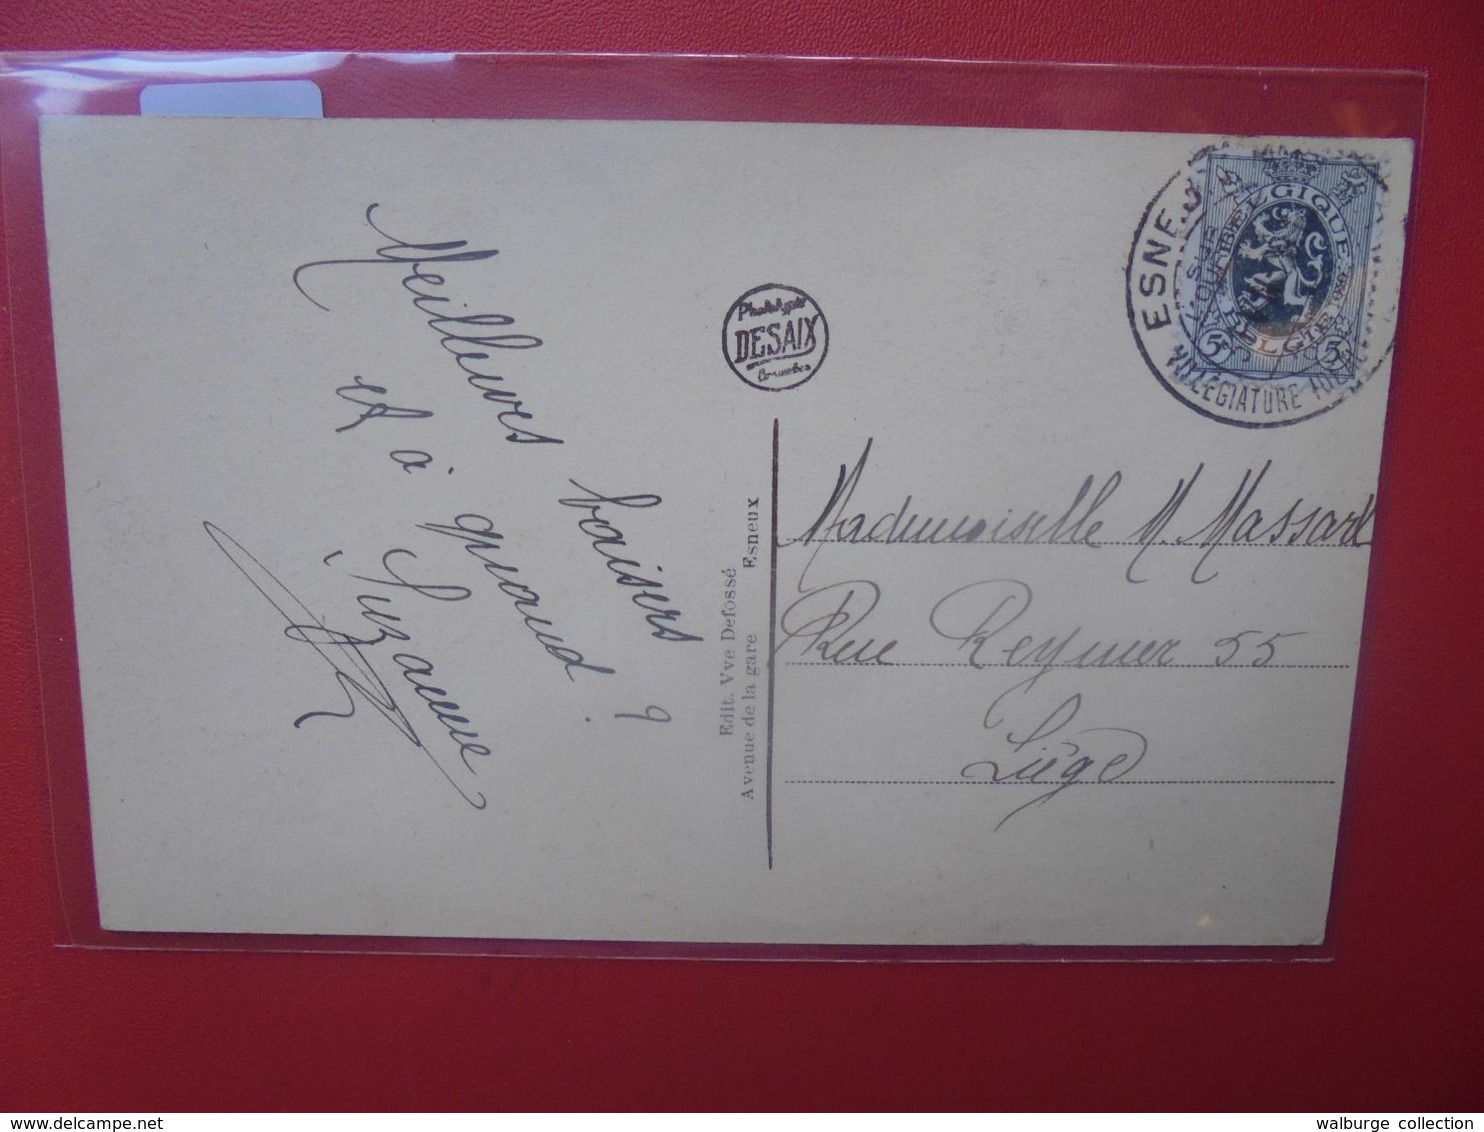 Meilleurs baisers
et à quand ?
Suzanne
Phototypie
DESAIX
Bruxelles
Edit. Vve Defossé
Avenue de la gare Esneux
ESNEU
VILLEGIATURE
BELGIQUE
BELGIE
5 5
Mademoiselle M. Massart
Rue Reynier 55
Liège
www.delcampe.net
walburge collection